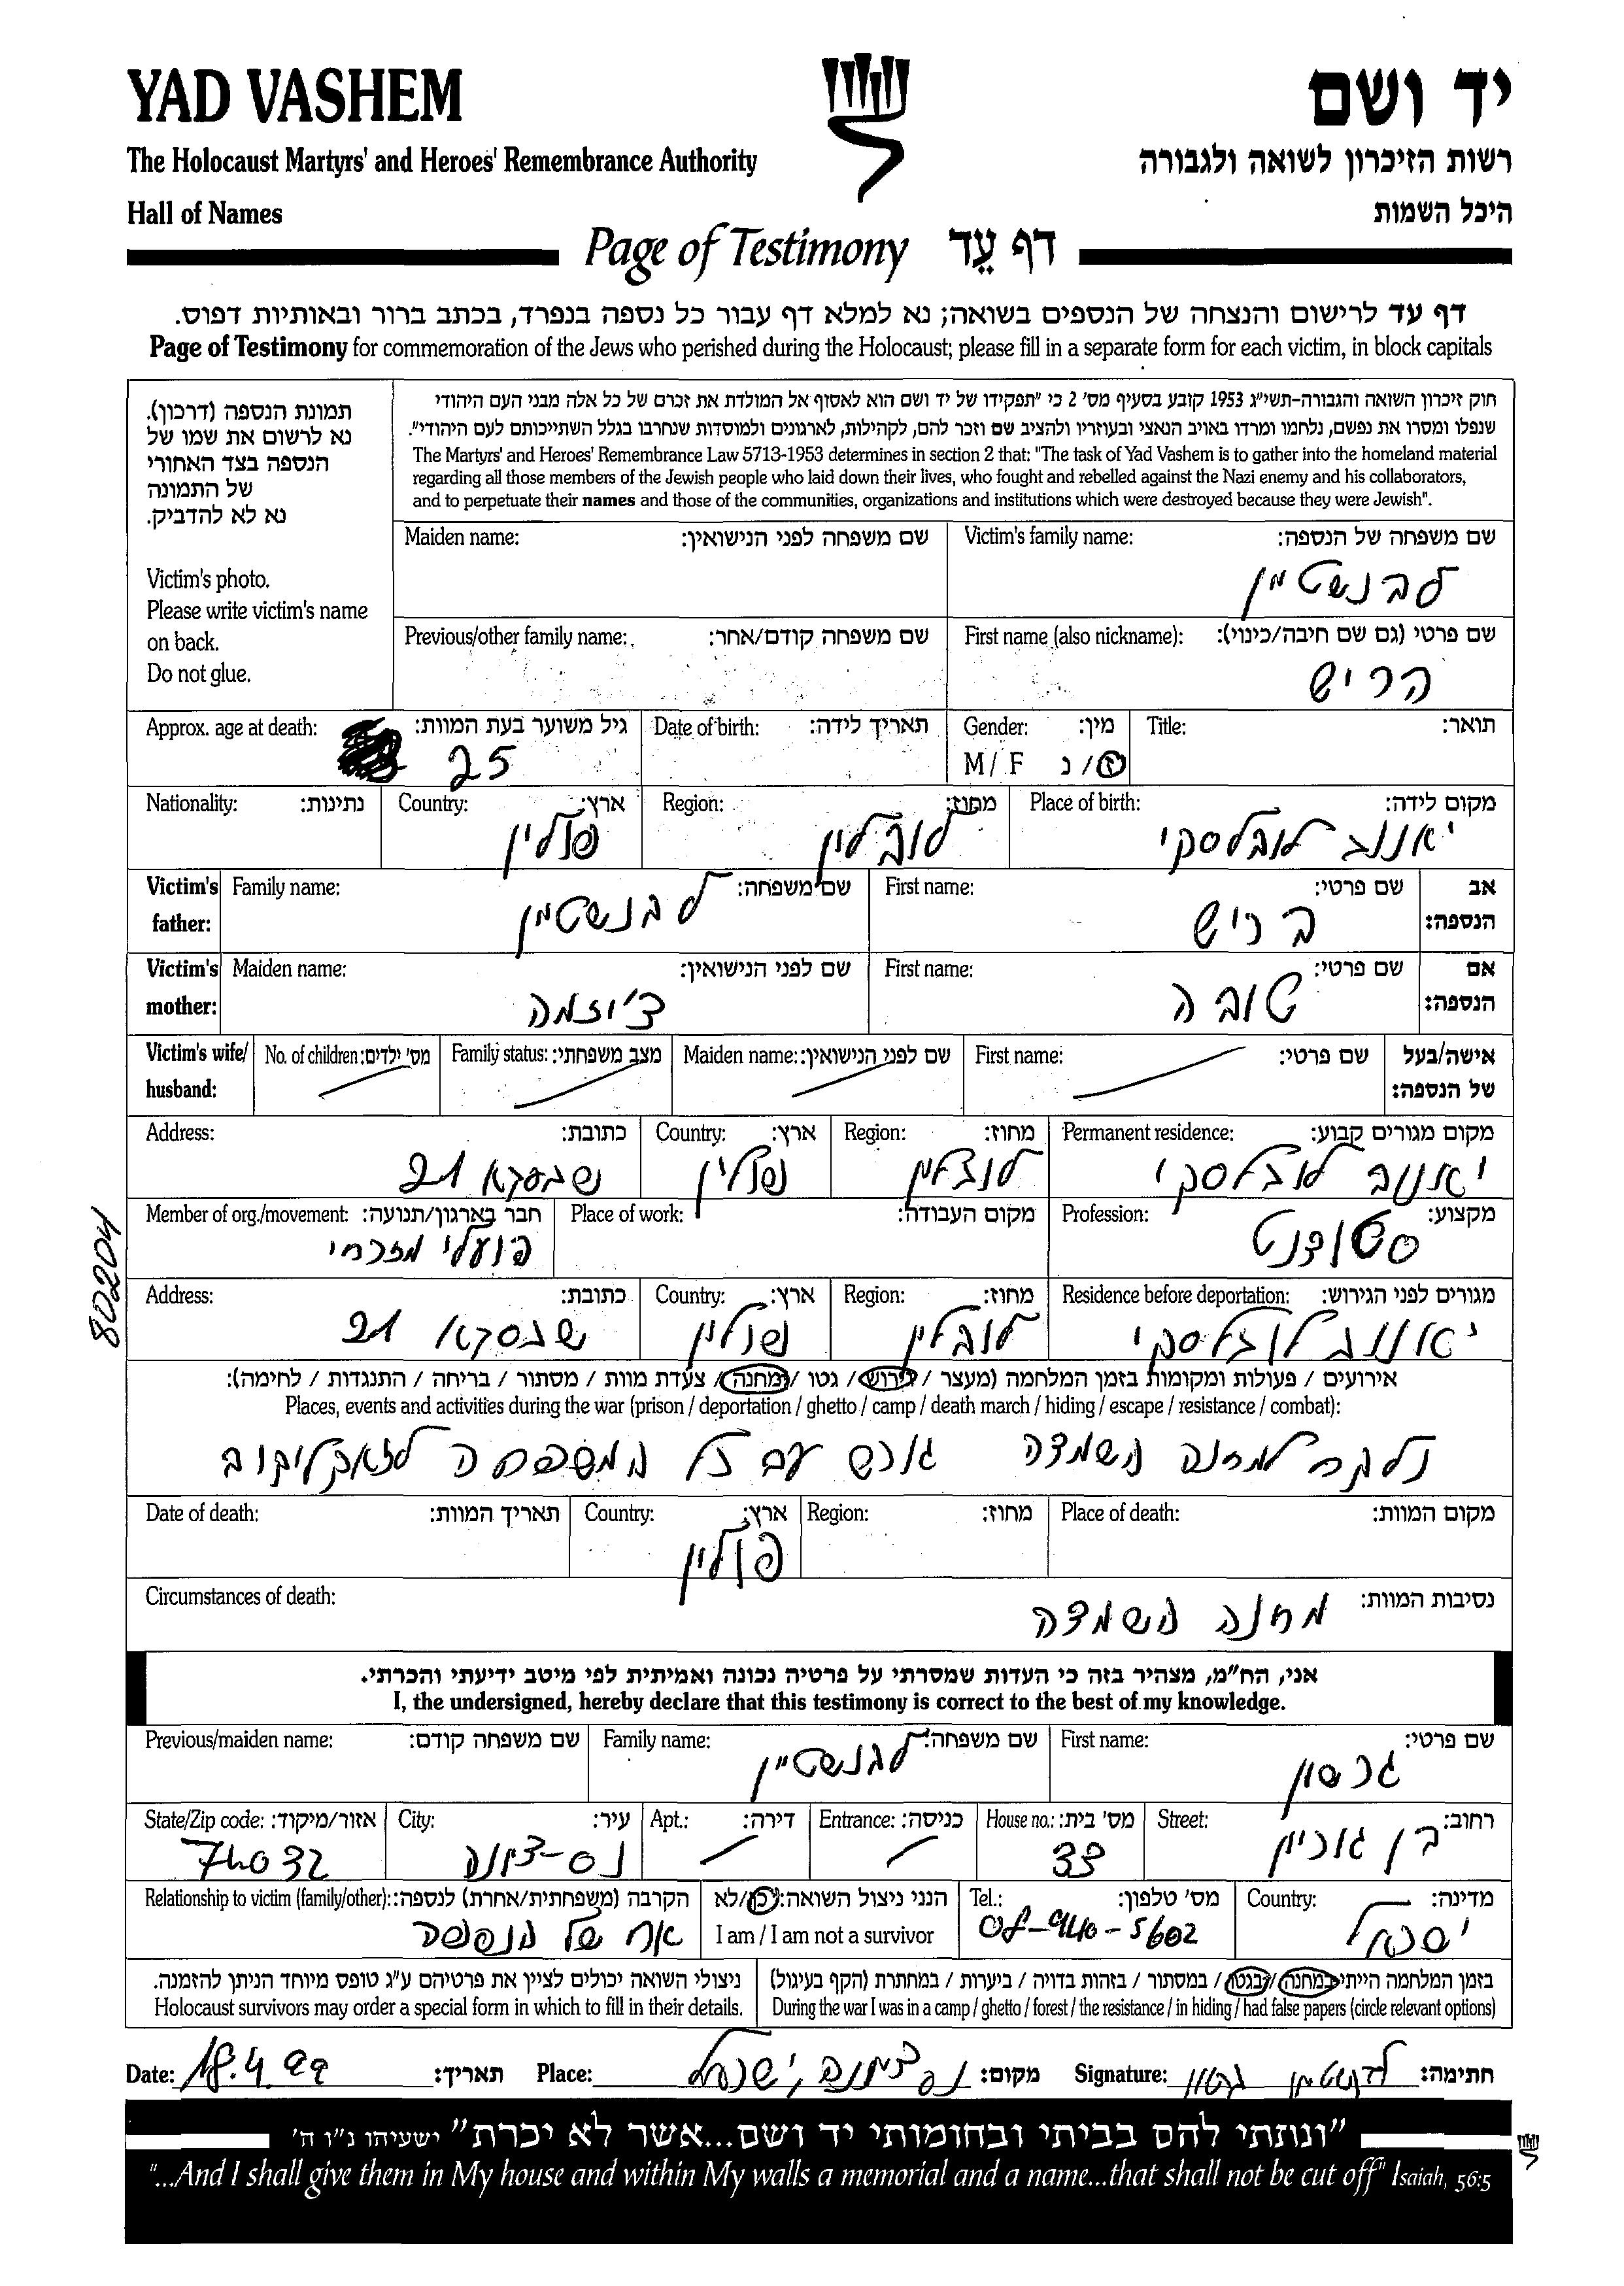 YAD VASHEM
יד ושם
The Holocaust Martyrs' and Heroes' Remembrance Authority
רשות הזיכרון לשואה ולגבורה
Hall of Names
היכל השמות
Page of Testimony דף עֵד
דף עד לרישום והנצחה של הנספים בשואה; נא למלא דף עבור כל נספה בנפרד, בכתב ברור ובאותיות דפוס.
Page of Testimony for commemoration of the Jews who perished during the Holocaust; please fill in a separate form for each victim, in block capitals
תמונת הנספה (דרכון).
נא לרשום את שמו של
הנספה בצד האחורי
של התמונה
נא לא להדביק.
Victim's photo.
Please write victim's name
on back.
Do not glue.
חוק זיכרון השואה והגבורה-תשי"ג 1953 קובע בסעיף מס' 2 כי "תפקידו של יד ושם הוא לאסוף אל המולדת את זכרם של כל אלה מבני העם היהודי
שנפלו ומסרו את נפשם, נלחמו ומרדו באויב הנאצי ובעוזריו ולהציב שם וזכר להם, לקהילות, לארגונים ולמוסדות שנחרבו בגלל השתייכותם לעם היהודי".
The Martyrs' and Heroes' Remembrance Law 5713-1953 determines in section 2 that: "The task of Yad Vashem is to gather into the homeland material
regarding all those members of the Jewish people who laid down their lives, who fought and rebelled against the Nazi enemy and his collaborators,
and to perpetuate their names and those of the communities, organizations and institutions which were destroyed because they were Jewish".
Victim's family name: שם משפחה של הנספה:
לבנשטיין
Maiden name: שם משפחה לפני הנישואין:
First name (also nickname): שם פרטי (גם שם חיבה/כינוי):
הריש
Previous/other family name: שם משפחה קודם/אחר:
Title: תואר:
Gender: מין:
M/ F ז/ נ
Date of birth: תאריך לידה:
Approx. age at death: גיל משוער בעת המוות:
25
Place of birth: מקום לידה:
יאנוב לובלסקי
Region: מחוז:
לובלין
Country: ארץ:
פולין
Nationality: נתינות:
Victim's father: אב הנספה:
First name: שם פרטי:
בריש
Family name: שם משפחה:
לבנשטיין
Victim's mother: אם הנספה:
First name: שם פרטי:
טובה
Maiden name: שם לפני הנישואין:
צ'וזמה
Victim's wife/ husband: אישה/בעל של הנספה:
First name: שם פרטי:
Maiden name: שם לפני הנישואין:
Family status: מצב משפחתי:
No. of children: מס' ילדים:
Permanent residence: מקום מגורים קבוע:
יאנוב לובלסקי
Region: מחוז:
לובלין
Country: ארץ:
פולין
Address: כתובת:
שבסקא 21
Profession: מקצוע:
סטודנט
Place of work: מקום העבודה:
Member of org./movement: חבר בארגון/תנועה:
פועלי מזרחי
Residence before deportation: מגורים לפני הגירוש:
יאנוב לובלסקי
Region: מחוז:
לובלין
Country: ארץ:
פולין
Address: כתובת:
שבסקא 21
80204
אירועים / פעולות ומקומות בזמן המלחמה (מעצר / גירוש / גטו / מחנה / צעדת מוות / מסתור / בריחה / התנגדות / לחימה):
Places, events and activities during the war (prison / deportation / ghetto / camp / death march / hiding / escape / resistance / combat):
נלקח למחנה השמדה גורש עם כל המשפחה לזאקליקוב
Place of death: מקום המוות:
Region: מחוז:
Country: ארץ:
פולין
Date of death: תאריך המוות:
Circumstances of death: נסיבות המוות:
מחנה השמדה
אני, הח"מ, מצהיר בזה כי העדות שמסרתי על פרטיה נכונה ואמיתית לפי מיטב ידיעתי והכרתי.
I, the undersigned, hereby declare that this testimony is correct to the best of my knowledge.
First name: שם פרטי:
גרשון
Family name: שם משפחה:
לבנשטיין
Previous/maiden name: שם משפחה קודם:
Street: רחוב:
בן גוריון
House no.: מס' בית:
33
Entrance: כניסה:
Apt.: דירה:
City: עיר:
נס-ציונה
State/Zip code: אזור/מיקוד:
74032
Country: מדינה:
ישראל
Tel.: מס' טלפון:
08-940-5602
הנני ניצול השואה: כן/לא
I am / I am not a survivor
Relationship to victim (family/other): הקרבה (משפחתית/אחרת) לנספה:
אח של הנספה
בזמן המלחמה הייתי במחנה / בגטו / במסתור / בזהות בדויה / ביערות / במחתרת (הקף בעיגול)
During the war I was in a camp / ghetto / forest / the resistance / in hiding / had false papers (circle relevant options)
ניצולי השואה יכולים לציין את פרטיהם ע"ג טופס מיוחד הניתן להזמנה.
Holocaust survivors may order a special form in which to fill in their details.
Date: 18.4.99 תאריך: Place: נס ציונה, ישראל מקום: Signature: לבנשטיין גרשון חתימה:
"ונתתי להם בביתי ובחומותי יד ושם...אשר לא יכרת" ישעיהו נ"ו ה'
"...And I shall give them in My house and within My walls a memorial and a name...that shall not be cut off" Isaiah, 56:5